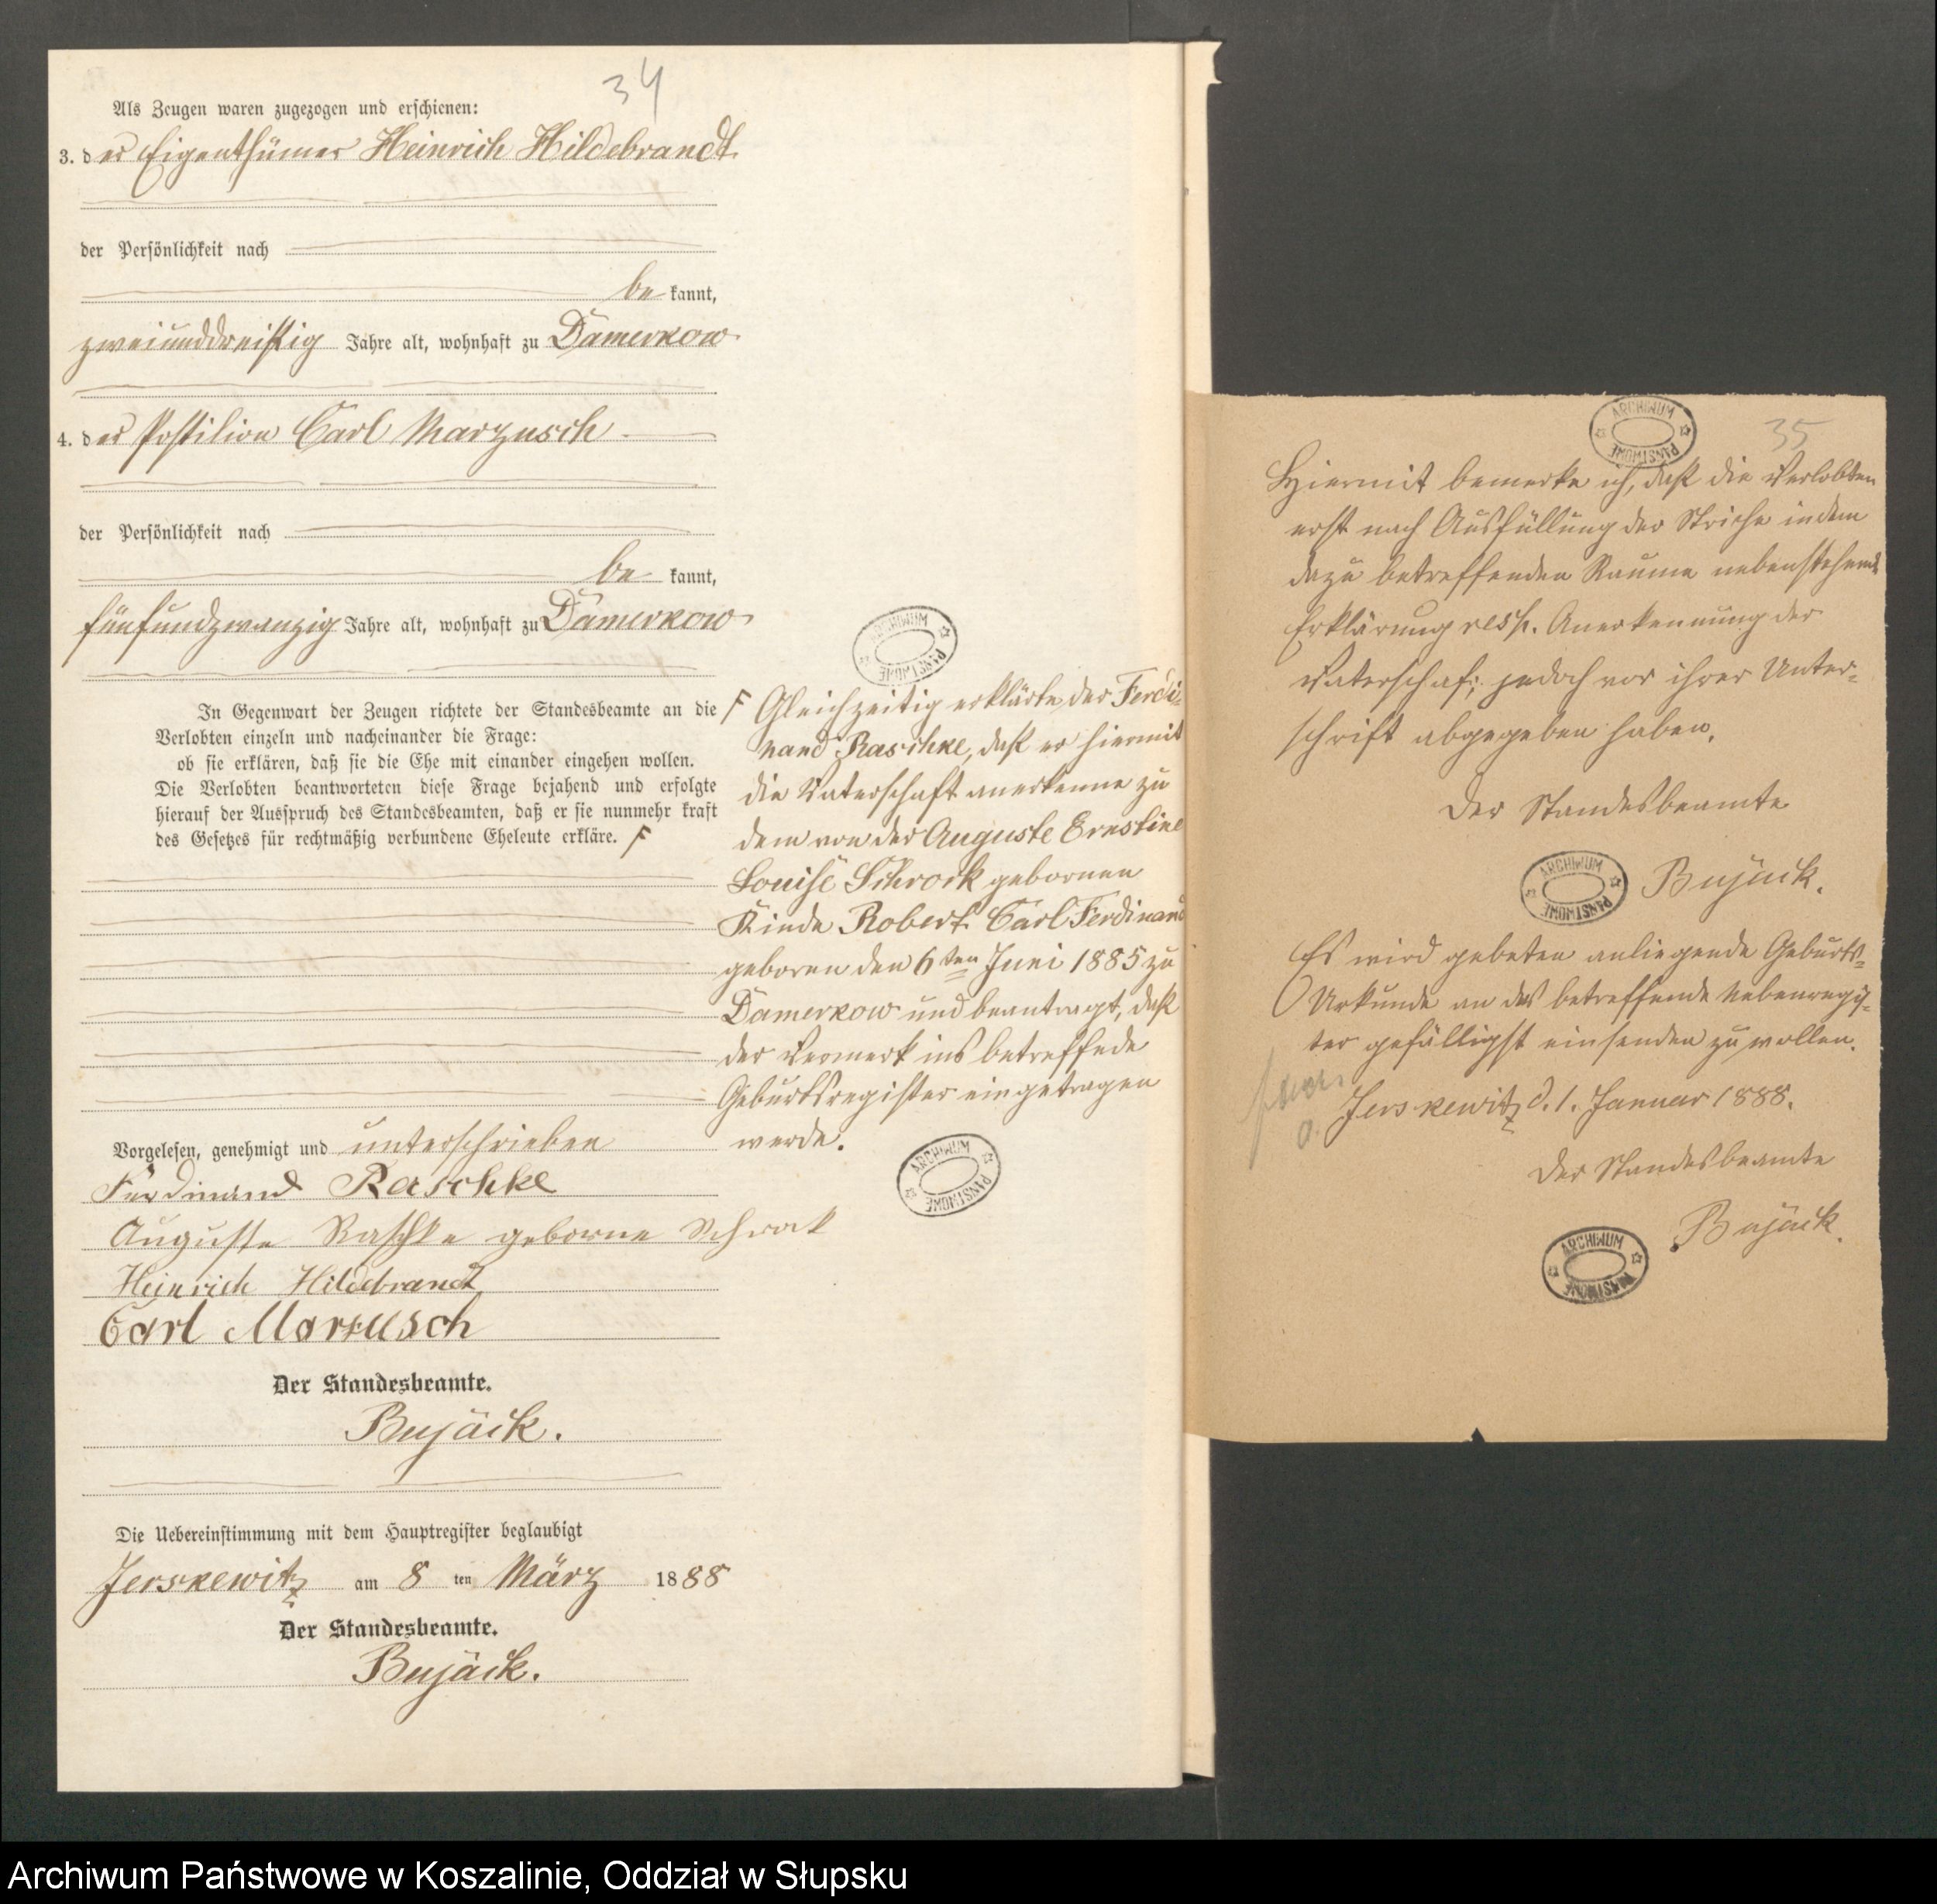 34
Als Zeugen waren zugezogen und erschienen:
3. der Eigenthümer Heinrich Hildebrandt
der Persönlichkeit nach
be kannt,
zweiunddreißig Jahre alt, wohnhaft zu Damerkow
4. der Postilion Carl Marzusch
der Persönlichkeit nach
be kannt,
fünfundzwanzig Jahre alt, wohnhaft zu Damerkow
In Gegenwart der Zeugen richtete der Standesbeamte an die
Verlobten einzeln und nacheinander die Frage:
ob sie erklären, daß sie die Ehe mit einander eingehen wollen.
Die Verlobten beantworteten diese Frage bejahend und erfolgte
hierauf der Ausspruch des Standesbeamten, daß er sie nunmehr kraft
des Gesetzes für rechtmäßig verbundene Eheleute erkläre. F
Vorgelesen, genehmigt und unterschrieben
Ferdinand Raschke
Auguste Raschke geborne Schrock
Heinrich Hildebrandt
Carl Marzusch
Der Standesbeamte.
Bujäck.
Die Uebereinstimmung mit dem Hauptregister beglaubigt
Jerskewitz am 8 ten März 1888
Der Standesbeamte.
Bujäck.
ARCHIWUM PAŃSTWOWE
F Gleichzeitig erklärte der Ferdi-
nand Raschke, daß er hiermit
die Vaterschaft anerkenne zu
dem von der Auguste Ernstine
Louise Schrock gebornen
Kinde Robert Carl Ferdinand
geboren den 6ten Juni 1885 zu
Damerkow und beantragt, daß
der Vermerk ins betreffede
Geburtsregister eingetragen
werde.
ARCHIWUM PAŃSTWOWE
ARCHIWUM PAŃSTWOWE
35
Hiermit bemerke ich, daß die Verlobten
erst nach Ausfüllung der Striche in dem
dazu betreffenden Raume nebenstehende
Erklärung resp. Anerkennung der
Vaterschaft, jedoch vor ihrer Unter-
schrift abgegeben haben.
Der Standesbeamte
ARCHIWUM PAŃSTWOWE
Bujäck.
Es wird gebeten anliegende Geburts-
Urkunde an das betreffende Nebenregis-
ter gefälligst einsenden zu wollen.
Jerskewitz d. 1. Januar 1888.
Der Standesbeamte
Bujäck.
ARCHIWUM PAŃSTWOWE
Archiwum Państwowe w Koszalinie, Oddział w Słupsku